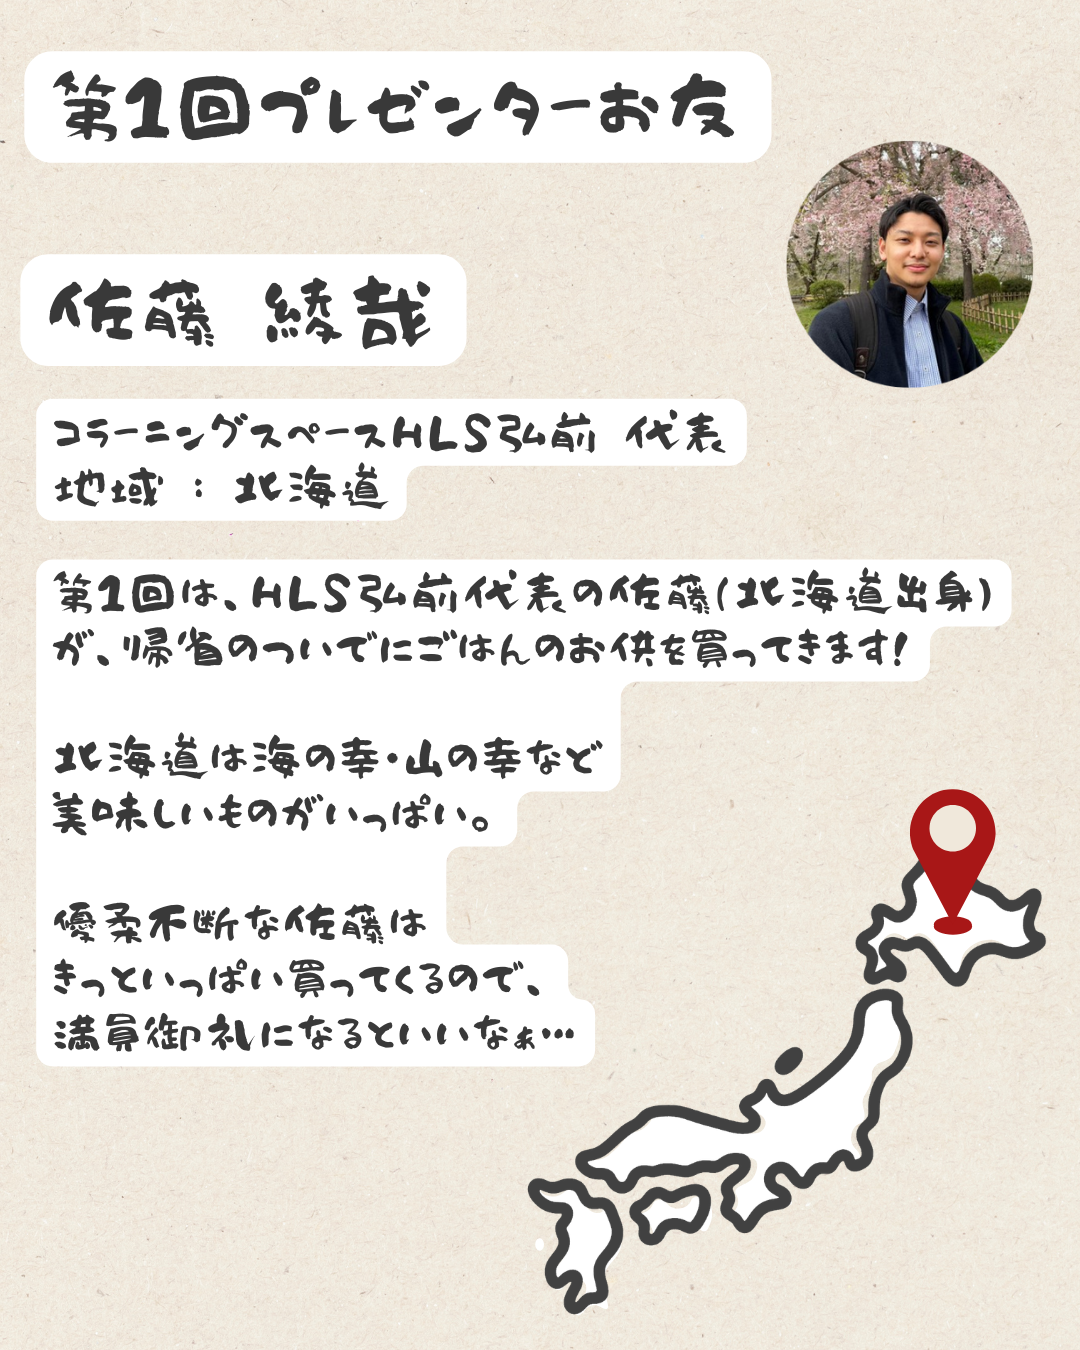 第1回プレゼンターお友
佐藤 綾哉
コラーニングスペースHLS弘前 代表
地域 : 北海道
第1回は、HLS弘前代表の佐藤(北海道出身)
が、帰省のついでにごはんのお供を買ってきます!
北海道は海の幸・山の幸など
美味しいものがいっぱい。
優柔不断な佐藤は
きっといっぱい買ってくるので、
満員御礼になるといいなぁ…